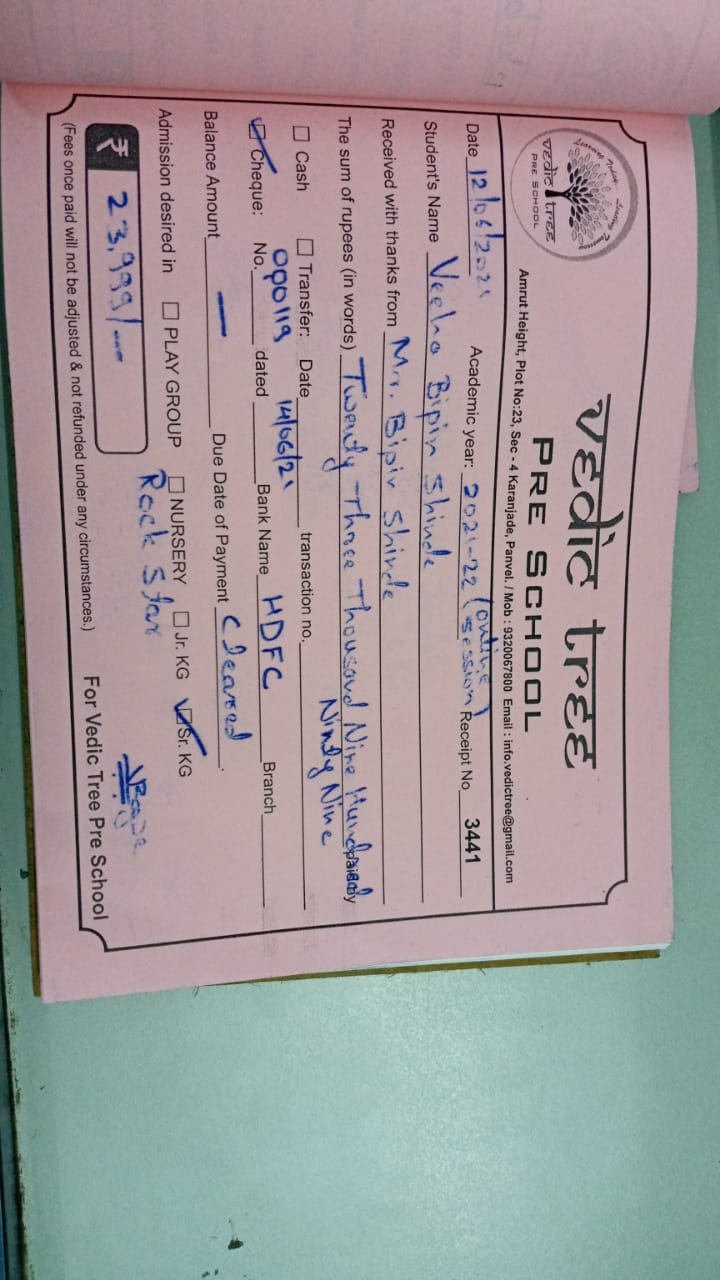 vedic tree
PRE SCHOOL
vedic tree
PRE SCHOOL
Amrut Height, Plot No:23, Sec - 4 Karanjade, Panvel. / Mob : 9320067800 Email : info.vedictree@gmail.com
Date 12/06/2021 Academic year: 2021-22 (online session) Receipt No 3441
Student's Name Veeha Bipin Shinde
Received with thanks from Mr. Bipin Shinde
The sum of rupees (in words) Twenty-Three-Thousand Nine Hundred only
Ninty Nine
☐ Cash ☐ Transfer: Date transaction no.
☑ Cheque: No. 000119 dated 14/06/21 Bank Name HDFC Branch
Balance Amount — Due Date of Payment Cleared.
Admission desired in ☐ PLAY GROUP ☐ NURSERY ☐ Jr. KG ☑ Sr. KG
Rock Star
₹ 23,999/---
For Vedic Tree Pre School
(Fees once paid will not be adjusted & not refunded under any circumstances.)